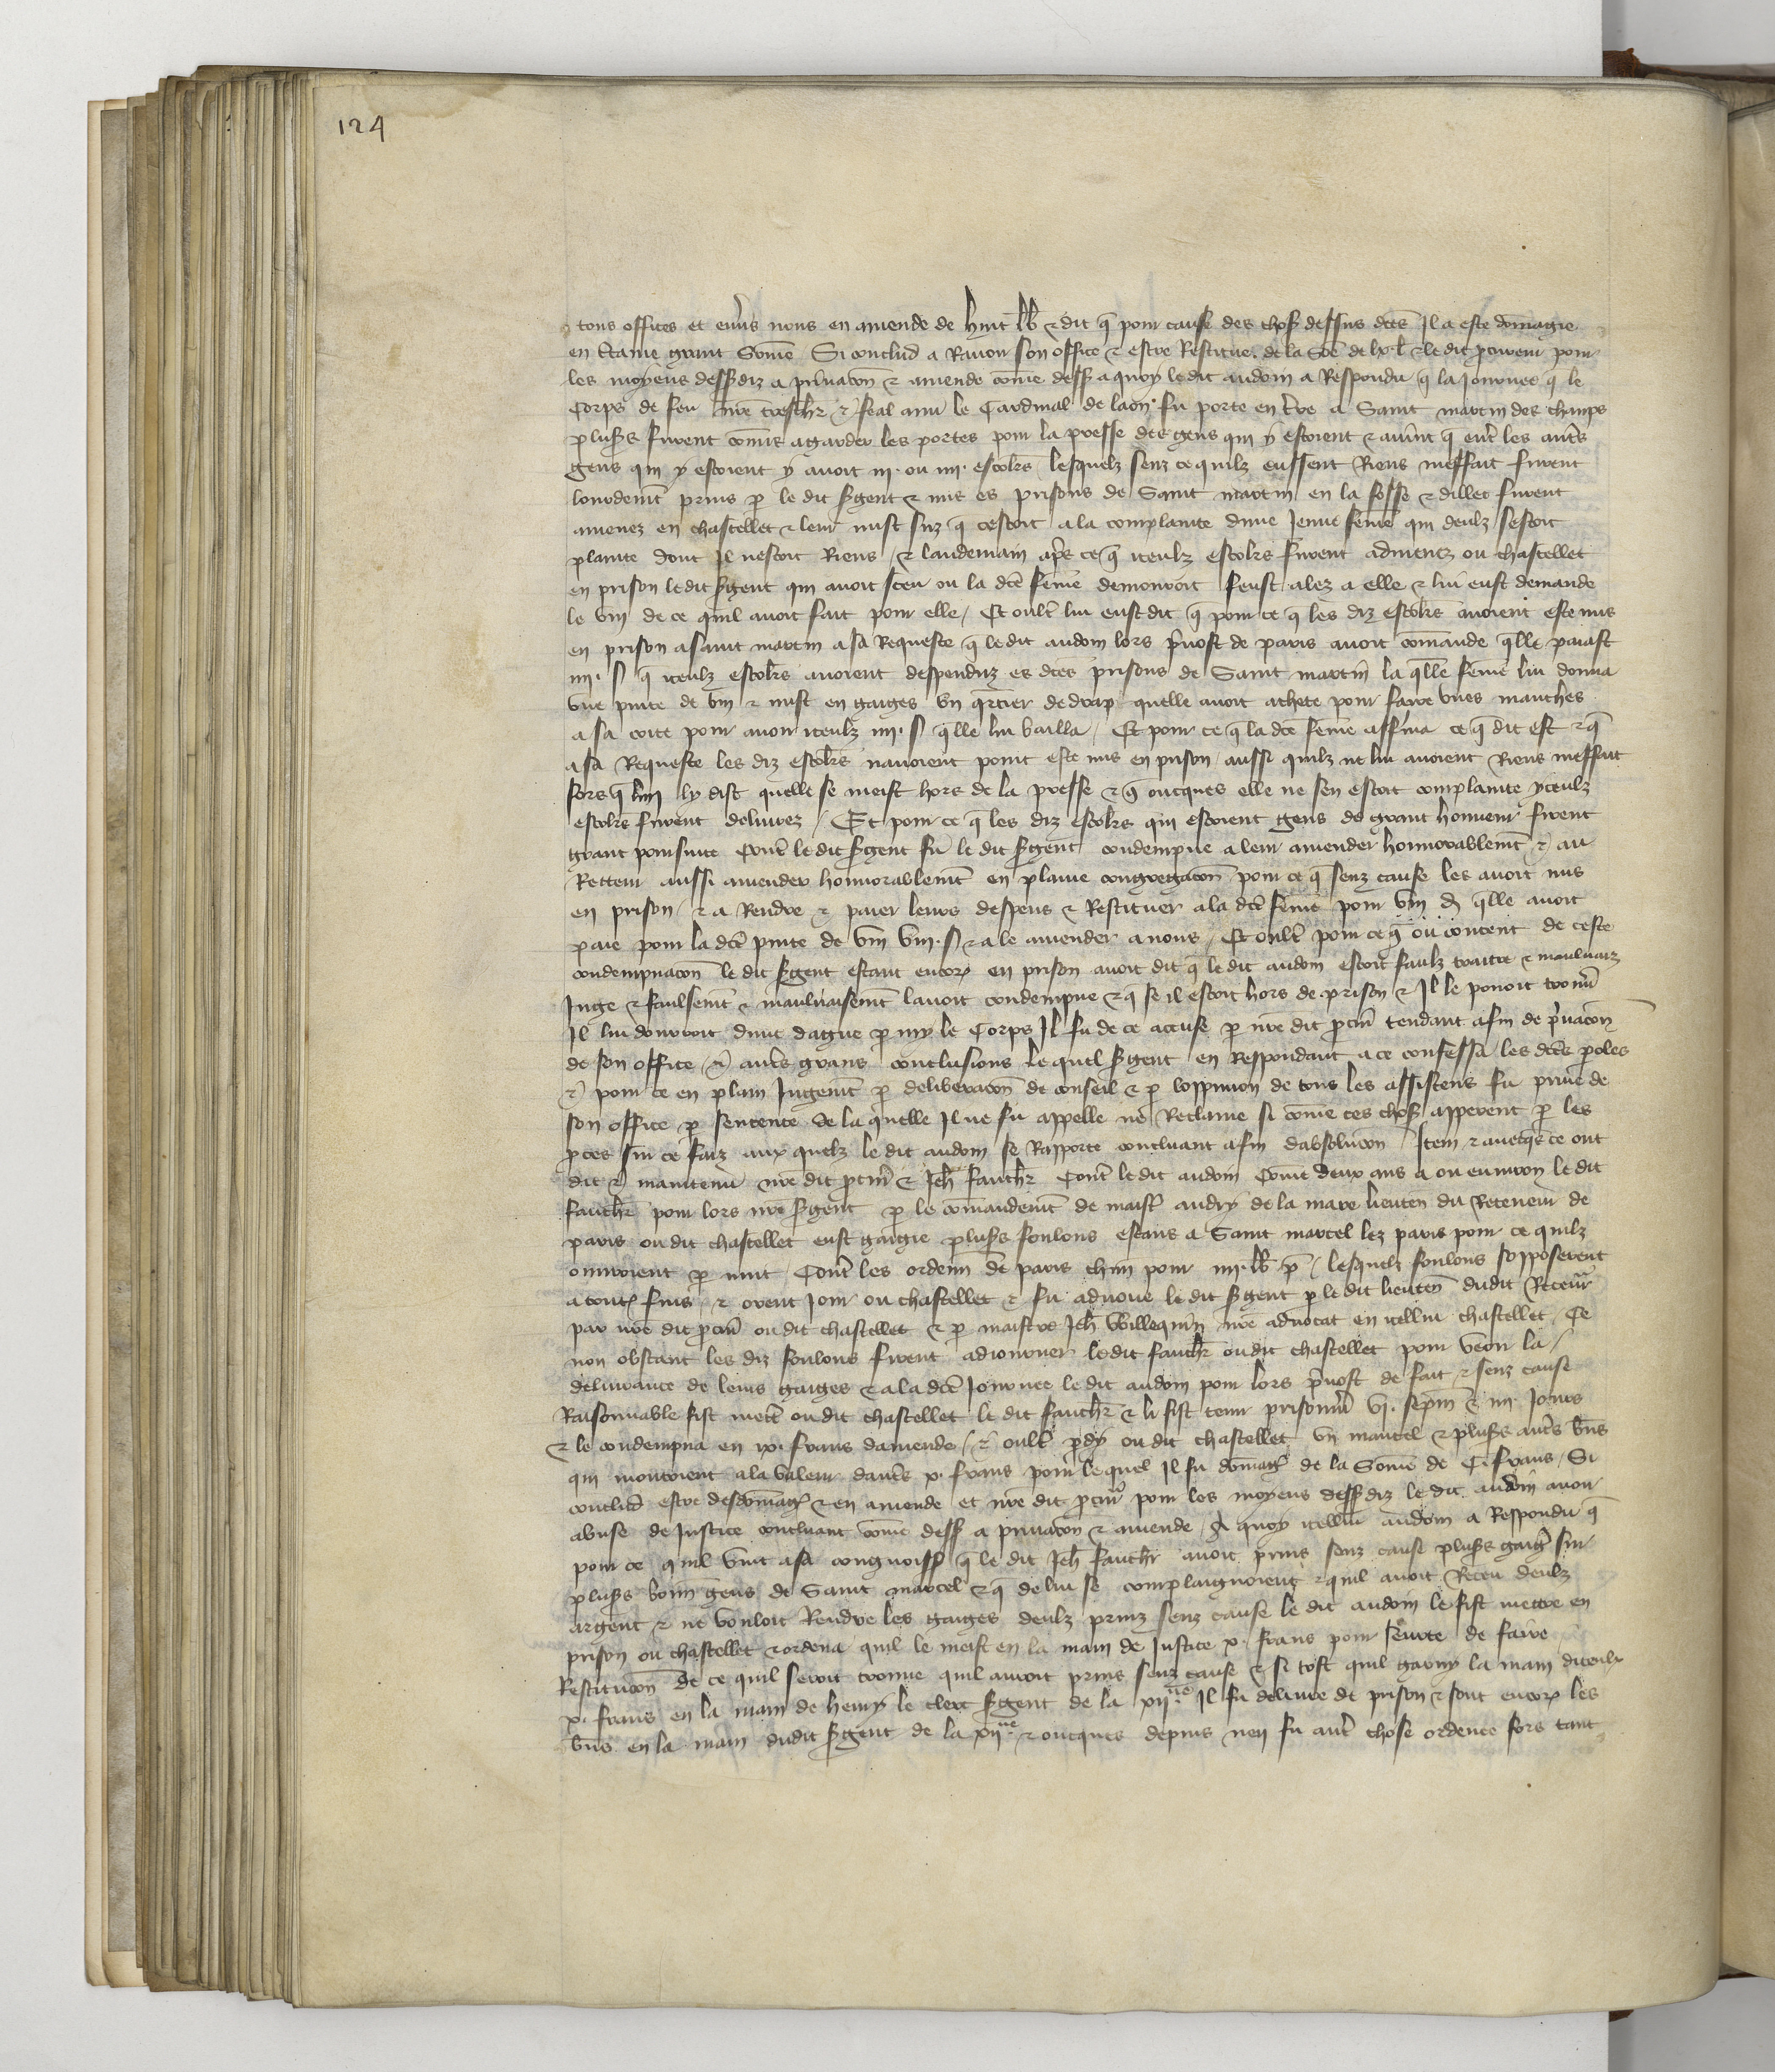 124
tous offices et envers nous en amende de huit lb̃ & dit q̃ pour cause des choses dessus dc̃es Il a este dommagie
en Claime grant Som̃e Si conclud a Ravoir son office & estre Restitue de la So̅e de lx l & le dit procureur pour
les moyens dessusdiz a privac̃on & amende com̃e dess a quoy le dit audoin a Respondu q̃ la Journee q̃ le
Corps de feu nr̃e treschr̃ & feal ami le Cardinal de laon fu porte en t̃re a Saint martin des champs
plus̃s furent com̃is a garder les portes pour la presse des gens qui y estoient & avint q̃ entr̃ les autr̃s
gens qui y estoient y avoit iii. ou iiii. escolrs̃ lesquelz senz ce quilz eussent Riens meffait furent
lourdem̃t prins p̱ le dit s̃gent & mis es prisons de Saint martin en la fosse & dillec furent
amenez en chastellet & leur mist sus q̃ cestoit a la complainte dune Jeune fem̃e qui deulz sestoit
plainte dont Il nestoit Riens / & landemain apr̃s ce q̃ iceulz escolrs̃ furent admenez ou chastellet
en prison ledit s̃gent qui avoit sceu ou la dc̃e fem̃e demouroit feust alez a elle & lui eust demande
le vin de ce quil avoit fait pour elle / Et oultr̃ lui eust dit q̃ pour ce q̃ les diz escolrs̃ avoient este mis
en prison a saint martin a sa Requeste q̃ le dit audoin lors p̃vost de paris avoit com̃ande q̃lle paiast
iiii. s q̃ iceulz escolrs̃ avoient despenduz es dc̃es prisons de Saint martin la q̃lle fem̃e lui donna
une pinte de vin & mist en gaiges un q̃rtier de drap quelle avoit achete pour faire unes manches
a sa cotte pour avoir iceulz iiii. s q̃lle lui bailla / Et pour ce q̃ la dc̃e fem̃e afferma ce q̃ dit est & q̃
a sa Requeste les diz escolrs̃ navoient point este mis en prison / aussi quilz ne lui avoient Riens meffait
fors q̃ lun ly dist quelle se meist hors de la presse & q̃ oncques elle ne sen estoit complainte yceulz
escolrs̃ furent delivrez / Et pour ce q̃ les diz escolrs̃ qui estoient gens de grant honneur firent
grant poursuite Contr̃ le dit s̃gent fu le dit s̃gent condempne a leur amender honnorablem̃t & au
Retteur aussi amender honnorablem̃t en plaine congregac̃on pour ce q̃ senz cause les avoit mis
en prison / & a Rendre & paier leurs despens & Restituer a la dc̃e fem̃e pour vin d̃ q̃lle avoit
paie pour la dc̃e pinte de vin viii. s & a le amender a nous / Et oultr̃ pour ce q̃ ou content de ceste
condempnac̃on le dit s̃gent estant encor̃ en prison avoit dit q̃ le dit audoin estoit faulz traitre & mauluaiz
Juge & faulsem̃t & mauluaisem̃t lavoit condempne & q̃ se il estoit hors de prison & Il le povoit trouṽ
Il lui donrroit dune dague p̱ my le Corps Il fu de ce accuse p̱ nr̃e dit p̱cur̃ tendant afin de p̃vac̃on
de son office & autr̃s grans conclusions le quel s̃gent en Respondant a ce confessa les dc̃es p̱oles
& pour ce en plain Jugem̃t p̱ deliberac̃on de conseil & p̱ loppinion de tous les assistens fu prive de
son office p̱ sentence de la quelle Il ne fu appelle ne Reclame si com̃e ces choses apperent p̱ les
p̱ces sur ce faiz aux quelz le dit audoin se Rapporte concluant afin dabsoluc̃on / Item & avecq̃s ce ont
dit & maintenu nr̃e dit p̱cur̃ & Jeh̃ faucher̃ Contr̃ le dit audoin Com̃e deux ans a ou environ le dit
faucher̃ pour lors nr̃e s̃gent p̱ le com̃andem̃t de maistr̃ andry de la mare lieuten̄ du Receveur de
paris ou dit chastellet eust gaigie plus̃s foulons estans a Saint marcel lez paris pour ce quilz
ouvroient p̱ nuit Contr̃ les ordenn̄ de paris chūn pour iiii. lb̃ p̱ / lesquelz foulons sopposerent
a toutes fins & orent Jour ou chastellet & fu advoue le dit s̃gent p̱ le dit lieuten̄ dudit Receveur
par nr̃e dit p̱cur̃ ou dit chastellet & p̱ maistre Jeh̃ Willequin nr̃e advocat en icellui chastellet / Ce
non obstant les diz foulons firent adiourner le dit faucher̃ ou dit chastellet pour veoir la
delivrance de leurs gaiges & a la dc̃e Journee le dit audoin pour lors p̃vost de fait & senz cause
Raisonnable fist mettr̃ ou dit chastellet le dit faucher̃ & li fist tenir prisonn̄ vi. sepm̄ & iiii. Jours
& le condempna en ix. frans damende / & oultr̃ p̱dy ou dit chastellet un mantel & plus̃s autr̃s biens
qui montoient a la valeur dautr̃s x. frans pour le quel Il fu dom̃agie de la Som̃e de C frans / Si
conclud estre desdom̃agie & en amende et nr̃e dit p̱cur̃ pour les moyens dessusdiz le dit audoin avoir
abuse de Justice concluant com̃e dess a privac̃on & amende / A quoy icellui audoin a Respondu q̃
pour ce quil vint a sa congnoiss̃ q̃ le dit Jeh̃ faucher̃ avoit prins senz cause plus̃s gaiges sur
plus̃s bonn̄ gens de Saint marcel & q̃ de lui se complaignoient & quil avoit Receu deulz
argent & ne vouloit Rendre les gaiges deulz prinz senz cause le dit audoin le fist mettre en
prison ou chastellet & ordena quil le meist en la main de Justice x. frans pour seurte de faire
Restituc̃on de ce quil seroit trouve quil auroit prins senz cause & si tost quil garny la main diceulx
x. frans en la main de henry le clerc s̃gent de la xiine Il fu delivre de prison & sont encor̃ les
uns en la main dudit s̃gent de la xiine & oncques depuis nen fu autr̃ chose ordenee fors tant